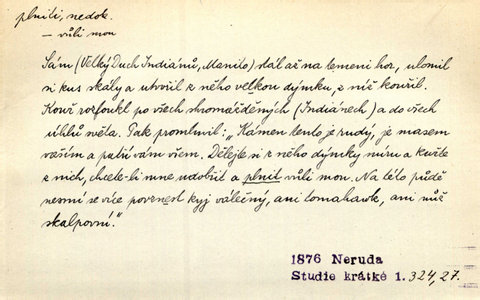 plniti, nedok.
– vůli mou
Sám (Velký Duch Indiánů, Manito) stál až na temeni hor, ulomil
si kus skály a utvořil z něho velkou dýmku, z níž kouřil.
Kouř rozfoukl po všech shromážděných (Indiánech) a do všech
úhlů světa. Pak promluvil: „Kámen tento je rudý, je masem
vaším a patří vám všem. Dělejte si z něho dýmky míru a kuřte
z nich, chcete-li mne udobřit a plnit vůli mou. Na této půdě
nesmí se více povznest kyj válečný, ani tomahawk, ani nůž
skalpovní."
1876 Neruda
Studie krátké 1. 324,27.